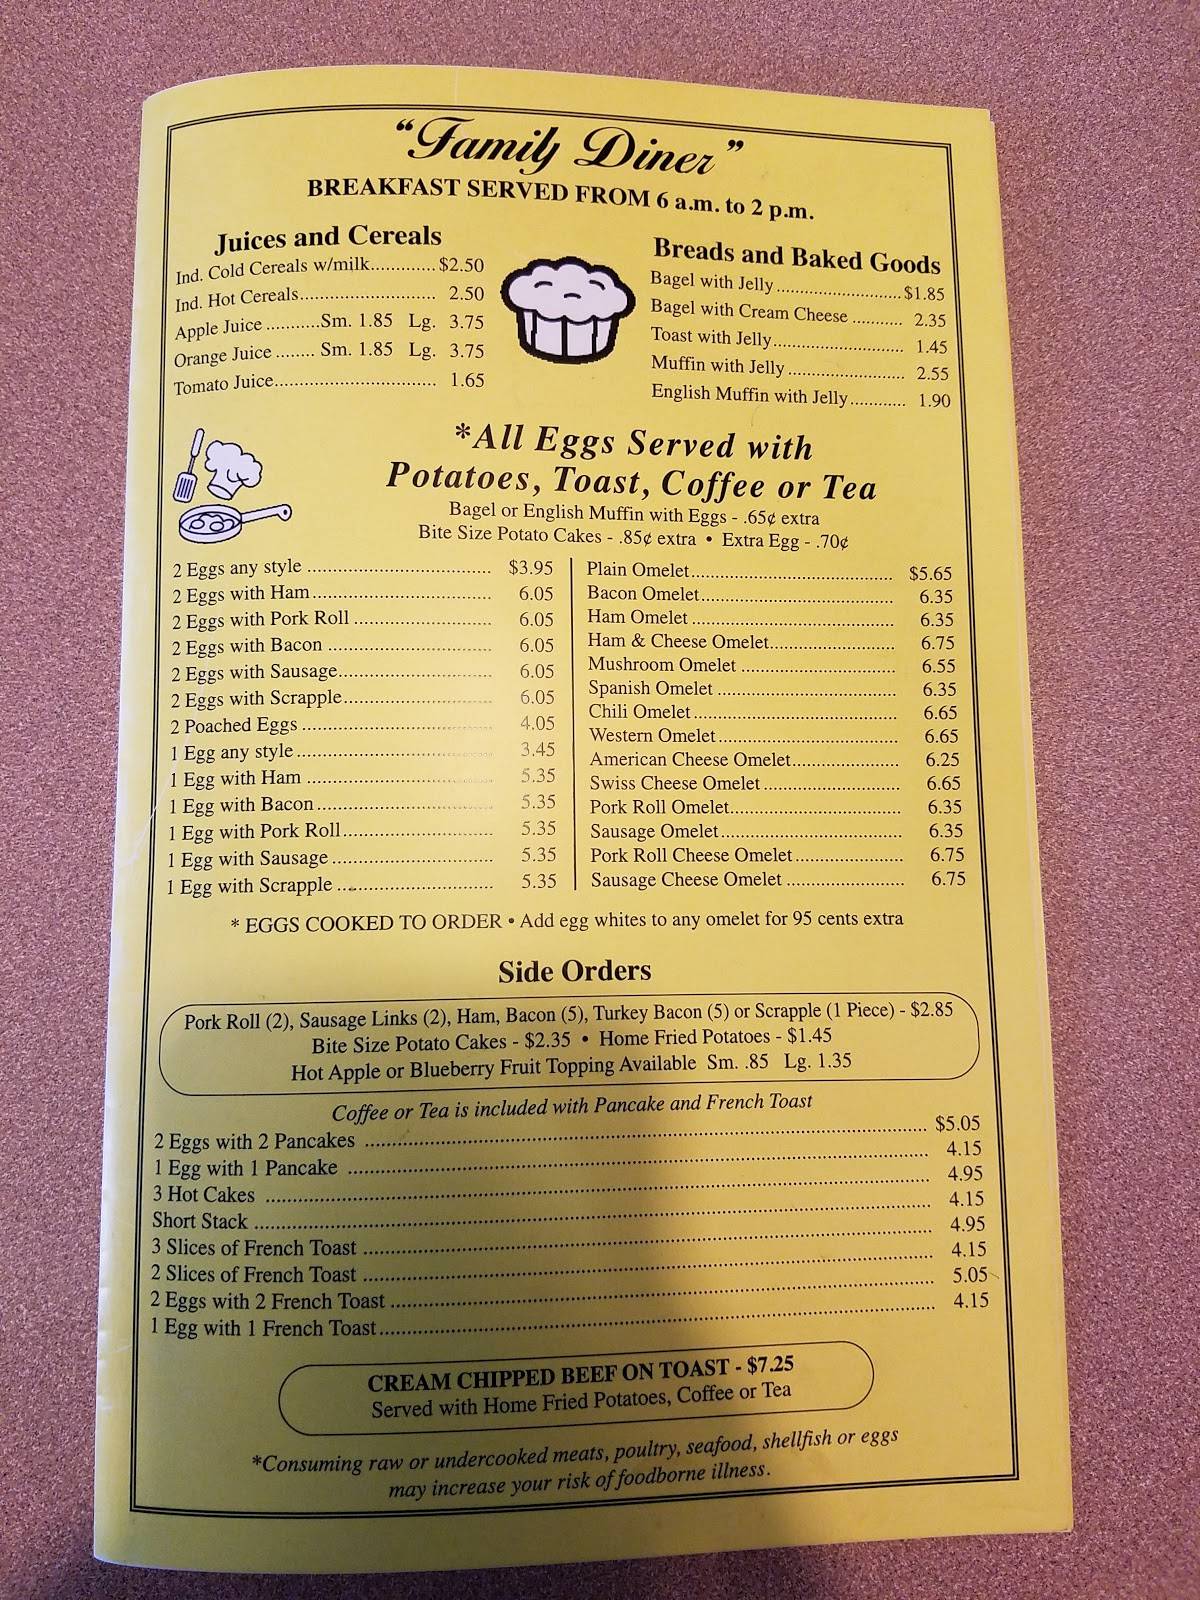 "Family Diner"
BREAKFAST SERVED FROM 6 a.m. to 2 p.m.
Juices and Cereals
Ind. Cold Cereals w/milk............. $2.50
Ind. Hot Cereals............................ 2.50
Apple Juice ...........Sm. 1.85 Lg. 3.75
Orange Juice ........ Sm. 1.85 Lg. 3.75
Tomato Juice................................. 1.65
Breads and Baked Goods
Bagel with Jelly .......................... $1.85
Bagel with Cream Cheese ........... 2.35
Toast with Jelly........................... 1.45
Muffin with Jelly ........................ 2.55
English Muffin with Jelly............ 1.90
*All Eggs Served with
Potatoes, Toast, Coffee or Tea
Bagel or English Muffin with Eggs - .65¢ extra
Bite Size Potato Cakes - .85¢ extra • Extra Egg - .70¢
2 Eggs any style ..................................... $3.95
2 Eggs with Ham.................................... 6.05
2 Eggs with Pork Roll ............................ 6.05
2 Eggs with Bacon ................................. 6.05
2 Eggs with Sausage............................... 6.05
2 Eggs with Scrapple.............................. 6.05
2 Poached Eggs ...................................... 4.05
1 Egg any style....................................... 3.45
1 Egg with Ham ..................................... 5.35
1 Egg with Bacon ................................... 5.35
1 Egg with Pork Roll.............................. 5.35
1 Egg with Sausage ................................ 5.35
1 Egg with Scrapple ............................... 5.35
Plain Omelet........................................ $5.65
Bacon Omelet...................................... 6.35
Ham Omelet ........................................ 6.35
Ham & Cheese Omelet......................... 6.75
Mushroom Omelet ............................... 6.55
Spanish Omelet .................................... 6.35
Chili Omelet ......................................... 6.65
Western Omelet.................................... 6.65
American Cheese Omelet..................... 6.25
Swiss Cheese Omelet ........................... 6.65
Pork Roll Omelet.................................. 6.35
Sausage Omelet.................................... 6.35
Pork Roll Cheese Omelet..................... 6.75
Sausage Cheese Omelet ....................... 6.75
* EGGS COOKED TO ORDER • Add egg whites to any omelet for 95 cents extra
Side Orders
Pork Roll (2), Sausage Links (2), Ham, Bacon (5), Turkey Bacon (5) or Scrapple (1 Piece) - $2.85
Bite Size Potato Cakes - $2.35 • Home Fried Potatoes - $1.45
Hot Apple or Blueberry Fruit Topping Available Sm. .85 Lg. 1.35
Coffee or Tea is included with Pancake and French Toast
2 Eggs with 2 Pancakes ........................................ $5.05
1 Egg with 1 Pancake ........................................ 4.15
3 Hot Cakes ........................................ 4.95
Short Stack ........................................ 4.15
3 Slices of French Toast ........................................ 4.95
2 Slices of French Toast ........................................ 4.15
2 Eggs with 2 French Toast ........................................ 5.05
1 Egg with 1 French Toast........................................ 4.15
CREAM CHIPPED BEEF ON TOAST - $7.25
Served with Home Fried Potatoes, Coffee or Tea
*Consuming raw or undercooked meats, poultry, seafood, shellfish or eggs
may increase your risk of foodborne illness.